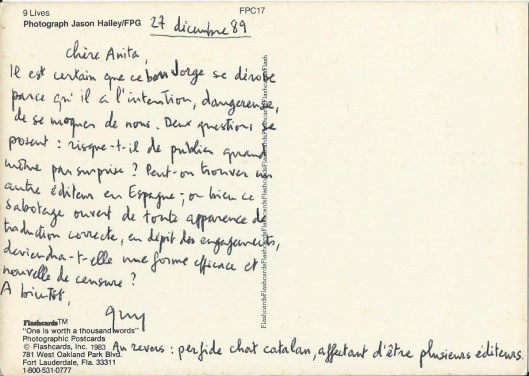 9 Lives
Photograph Jason Hailey/FPG
FPC17
27 décembre 89
Chère Anita,
Il est certain que ce bon Jorge se dérobe
parce qu'il a l'intention, dangereuse,
de se moquer de nous. Deux questions se
posent : risque-t-il de publier quand
même par surprise ? Peut-on trouver un
autre éditeur en Espagne ; ou bien ce
sabotage ouvert de toute apparence de
traduction correcte, en dépit des engagements,
deviendra-t-elle une forme efficace et
nouvelle de censure ?
A bientôt,
Guy
Flashcards™
"One is worth a thousand words"
Photographic Postcards
© Flashcards, Inc. 1983
781 West Oakland Park Blvd.
Fort Lauderdale, Fla. 33311
1-800-531-0777
Au revers : perfide chat catalan, affectant d'être plusieurs éditeurs.
FlashcardsFlashcardsFlashcardsFlashcardsFlashcardsFlashcardsFlashcardsFlashcardsFlashcardsFlash